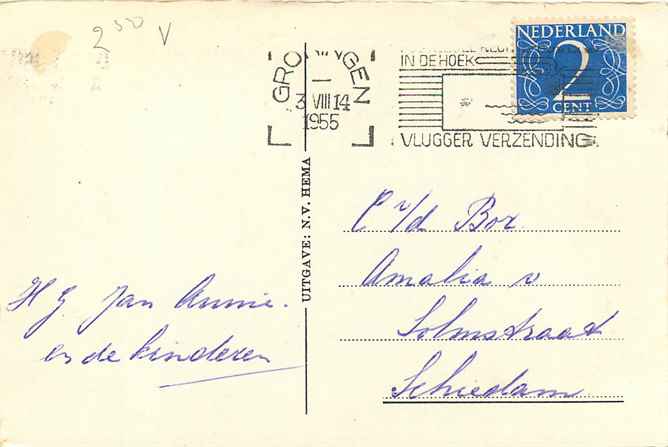 2⁵⁰ V
GRONINGEN
3 VIII 14
1955
IN DE HOEK
VLUGGER VERZENDING
NEDERLAND
2
CENT
UITGAVE: N.V. HEMA
H G. Jan Annie.
en de kinderen
C v/d Bor.
Amalia v
Solmstraat
Schiedam